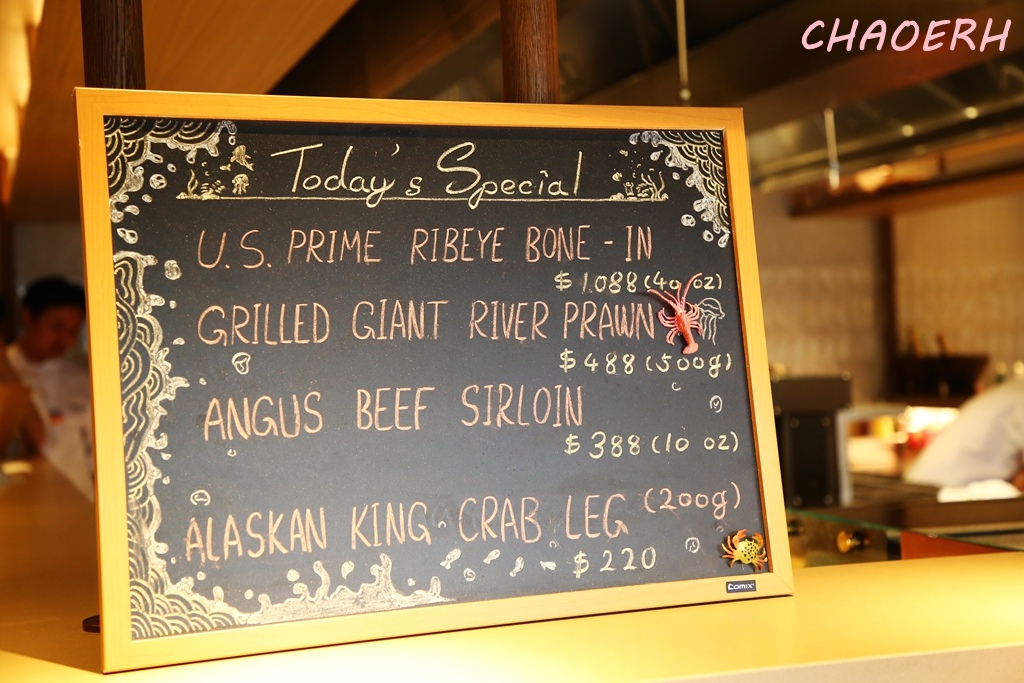 CHAOERH
Today's Special
U.S. PRIME RIBEYE BONE-IN
$1.088(40 oz)
GRILLED GIANT RIVER PRAWN
$488(500g)
ANGUS BEEF SIRLOIN
$388(10 oz)
ALASKAN KING CRAB LEG (200g)
$220
Comix